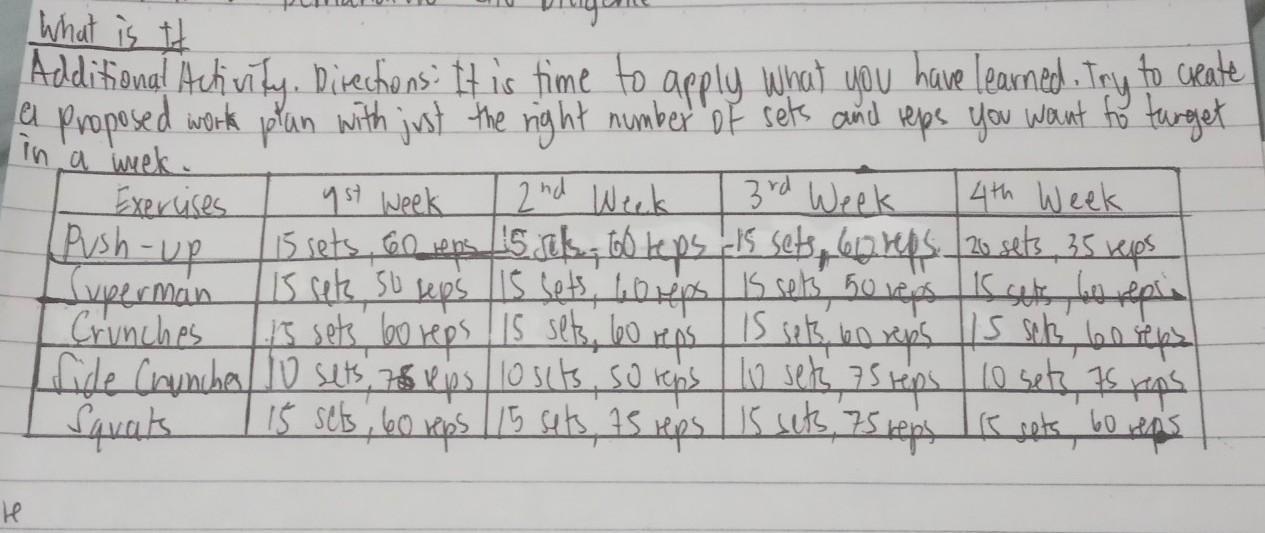 and Diligence
What is It
Additional Activity. Directions: It is time to apply what you have learned. Try to create
a proposed work plan with just the right number of sets and reps you want to target
in a week.
Exercises 1st Week 2nd Week 3rd Week 4th Week
Push-up 15 sets, 60 reps 15 sets, 60 reps 15 sets, 60 reps 20 sets, 35 reps
Superman 15 sets, 50 reps 15 sets, 60 reps 15 sets, 50 reps 15 sets, 60 reps
Crunches 15 sets, 60 reps 15 sets, 60 reps 15 sets, 60 reps 15 sets, 60 reps
Side Crunches 10 sets, 75 reps 10 sets, 50 reps 10 sets, 75 reps 10 sets, 75 reps
Squats 15 sets, 60 reps 15 sets, 75 reps 15 sets, 75 reps 15 sets, 60 reps